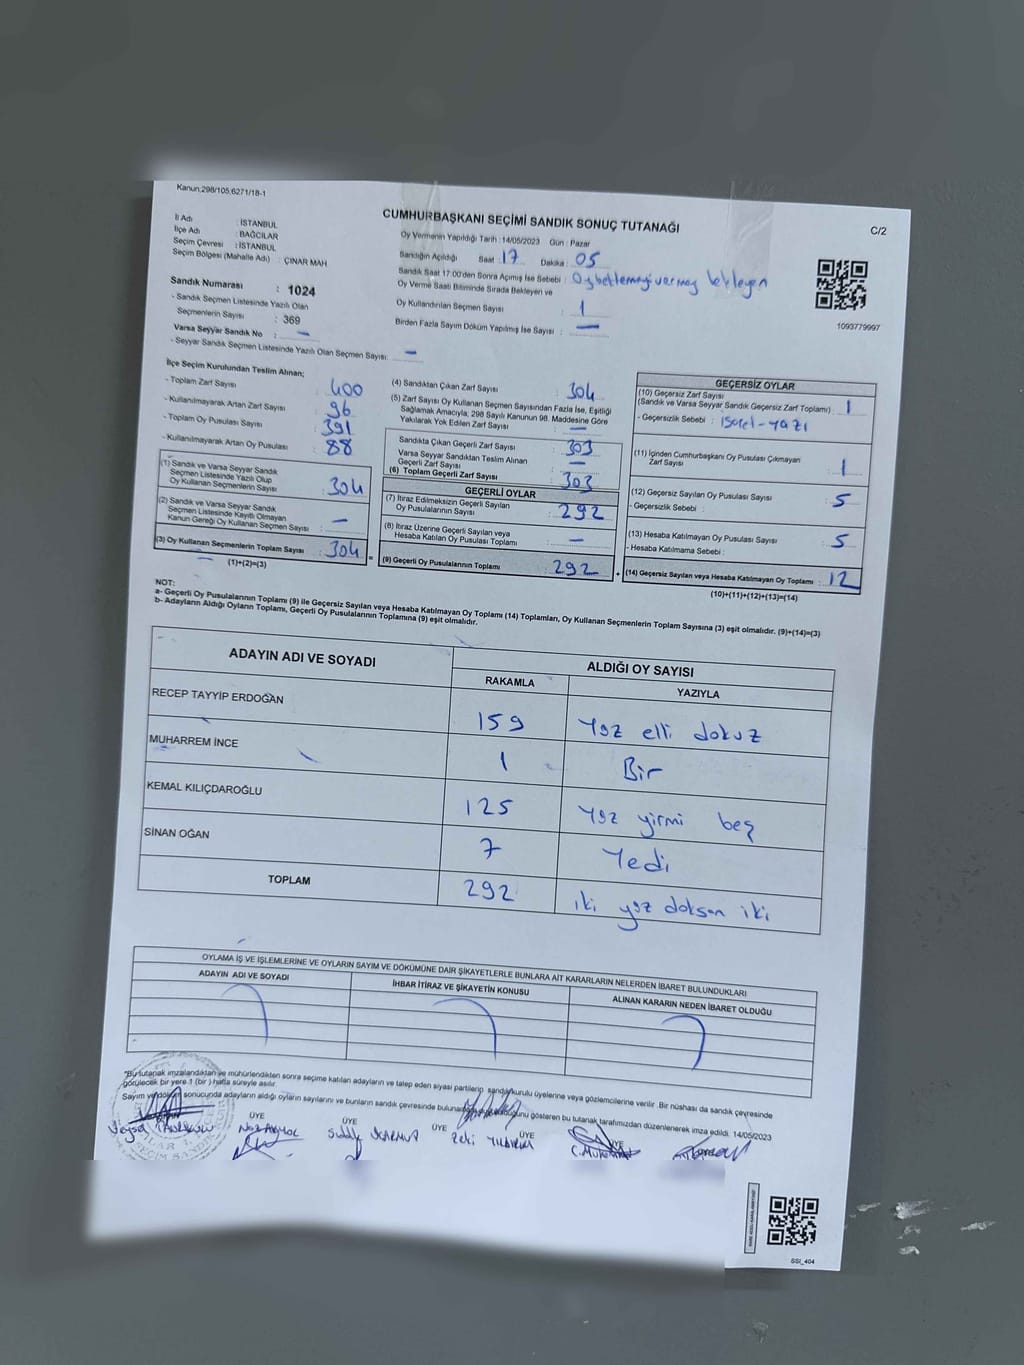 Kanun:298/105,6271/18-1
CUMHURBAŞKANI SEÇİMİ SANDIK SONUÇ TUTANAĞI
C/2
İl Adı : İSTANBUL
İlçe Adı : BAĞCILAR
Seçim Çevresi : İSTANBUL
Seçim Bölgesi (Mahalle Adı) : ÇINAR MAH
Sandık Numarası : 1024
- Sandık Seçmen Listesinde Yazılı Olan
Seçmenlerin Sayısı : 369
Varsa Seyyar Sandık No : –
- Seyyar Sandık Seçmen Listesinde Yazılı Olan Seçmen Sayısı: –
Oy Vermenin Yapıldığı Tarih : 14/05/2023 Gün : Pazar
Sandığın Açıldığı Saat : 17 Dakika : 05
Sandık Saat 17:00'den Sonra Açılmış İse Sebebi : Oy bekleyen
Oy Verme Saati Bitiminde Sırada Bekleyen ve
Oy Kullandırılan Seçmen Sayısı : 1
Birden Fazla Sayım Döküm Yapılmış İse Sayısı : –
1093779997
İlçe Seçim Kurulundan Teslim Alınan;
- Toplam Zarf Sayısı : 400
- Kullanılmayarak Artan Zarf Sayısı : 96
- Toplam Oy Pusulası Sayısı : 391
- Kullanılmayarak Artan Oy Pusulası : 88
(1) Sandık ve Varsa Seyyar Sandık
Seçmen Listesinde Yazılı Olup
Oy Kullanan Seçmenlerin Sayısı : 304
(2) Sandık ve Varsa Seyyar Sandık
Seçmen Listesinde Kayıtlı Olmayan
Kanun Gereği Oy Kullanan Seçmen Sayısı : –
(3) Oy Kullanan Seçmenlerin Toplam Sayısı : 304
(1)+(2)=(3)
(4) Sandıktan Çıkan Zarf Sayısı : 304
(5) Zarf Sayısı Oy Kullanan Seçmen Sayısından Fazla İse, Eşitliği
Sağlamak Amacıyla, 298 Sayılı Kanunun 98. Maddesine Göre
Yakılarak Yok Edilen Zarf Sayısı : –
Sandıkta Çıkan Geçerli Zarf Sayısı : 303
Varsa Seyyar Sandıktan Teslim Alınan
Geçerli Zarf Sayısı : –
(6) Toplam Geçerli Zarf Sayısı : 303
GEÇERLİ OYLAR
(7) İtiraz Edilmeksizin Geçerli Sayılan
Oy Pusulalarının Sayısı : 292
(8) İtiraz Üzerine Geçerli Sayılan veya
Hesaba Katılan Oy Pusulası Toplamı : –
= (9) Geçerli Oy Pusulalarının Toplamı : 292 +
GEÇERSİZ OYLAR
(10) Geçersiz Zarf Sayısı
(Sandık ve Varsa Seyyar Sandık Geçersiz Zarf Toplamı) : 1
- Geçersizlik Sebebi :
(11) İçinden Cumhurbaşkanı Oy Pusulası Çıkmayan
Zarf Sayısı : 1
(12) Geçersiz Sayılan Oy Pusulası Sayısı : 5
- Geçersizlik Sebebi :
(13) Hesaba Katılmayan Oy Pusulası Sayısı : 5
- Hesaba Katılmama Sebebi :
(14) Geçersiz Sayılan veya Hesaba Katılmayan Oy Toplamı : 12
(10)+(11)+(12)+(13)=(14)
NOT:
a- Geçerli Oy Pusulalarının Toplamı (9) ile Geçersiz Sayılan veya Hesaba Katılmayan Oy Toplamı (14) Toplamları, Oy Kullanan Seçmenlerin Toplam Sayısına (3) eşit olmalıdır. (9)+(14)=(3)
b- Adayların Aldığı Oyların Toplamı, Geçerli Oy Pusulalarının Toplamına (9) eşit olmalıdır.
ADAYIN ADI VE SOYADI ALDIĞI OY SAYISI
RAKAMLA YAZIYLA
RECEP TAYYİP ERDOĞAN 159 Yüz elli dokuz
MUHARREM İNCE 1 Bir
KEMAL KILIÇDAROĞLU 125 Yüz yirmi beş
SİNAN OĞAN 7 Yedi
TOPLAM 292 iki yüz doksan iki
OYLAMA İŞ VE İŞLEMLERİNE VE OYLARIN SAYIM VE DÖKÜMÜNE DAİR ŞİKAYETLERLE BUNLARA AİT KARARLARIN NELERDEN İBARET BULUNDUKLARI
ADAYIN ADI VE SOYADI İHBAR İTİRAZ VE ŞİKAYETİN KONUSU ALINAN KARARIN NEDEN İBARET OLDUĞU
*Bu tutanak imzalandıktan ve mühürlendikten sonra seçime katılan adayların ve talep eden siyasi partilerin sandık kurulu üyelerine veya gözlemcilerine verilir. Bir nüshası da sandık çevresinde
görülecek bir yere 1 (bir) hafta süreyle asılır.
Sayım ve döküm sonucunda adayların aldığı oyların sayılarını ve bunların sandık çevresinde gösteren bu tutanak tarafımızdan düzenlenerek imza edildi. 14/05/2023
ÜYE ÜYE ÜYE ÜYE ÜYE
Zeki YILDIRIM
SSI_404